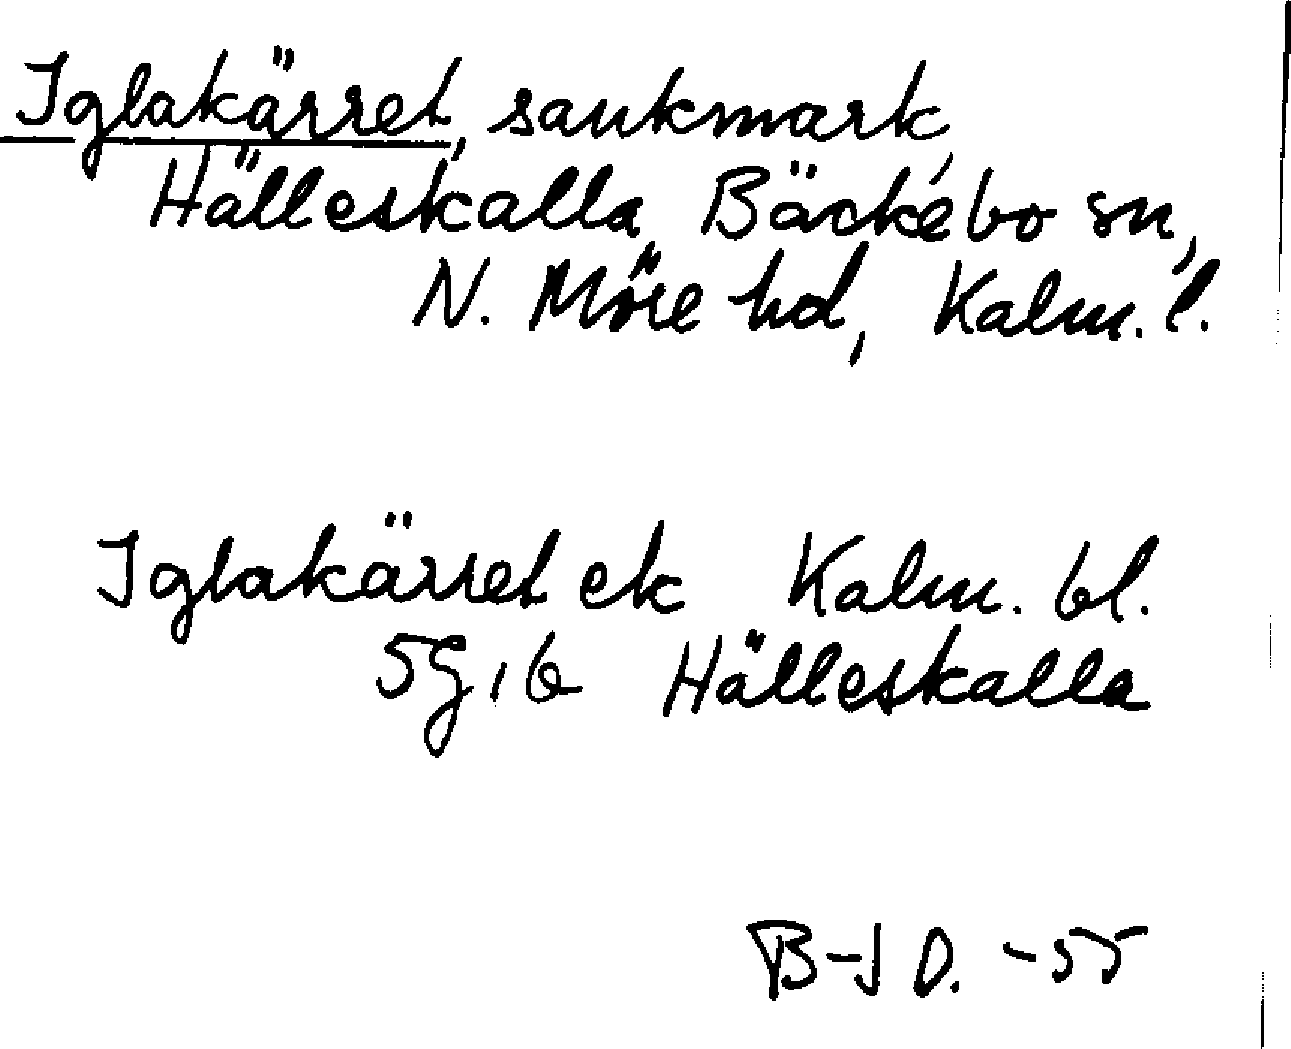 Iglakärret, sankmark,
Hälleskalla, Bäckebo sn,
N. Möre hd, Kalm. l.
Iglakärret ek Kalm. bl.
5g, 6 Hälleskalla
B-J O. -55